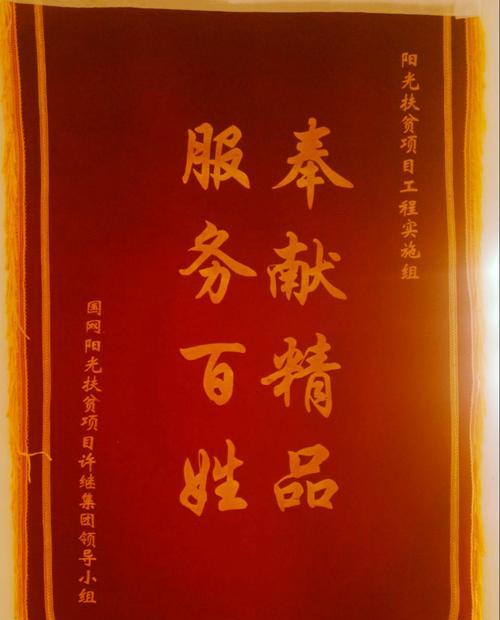 阳光扶贫项目工程实施组
奉献精品
服务百姓
国网阳光扶贫项目许继集团领导小组